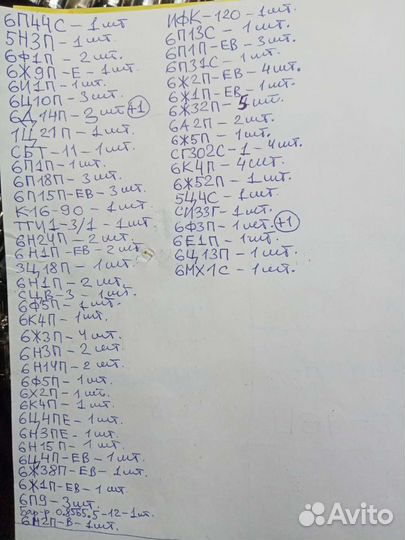 6П44С - 1 шт
5Н3П - 1 шт.
6Ф1П - 2 шт.
6Ж9П-Е - 1 шт.
6И1П - 1 шт.
6Ц10П - 3 шт.
6Д14П - 3 шт. +1
1Ц21П - 1 шт.
СБТ-11 - 1 шт.
6П1П - 1 шт.
6П18П - 3 шт.
6П15П-ЕВ - 3 шт.
К16-90 - 1 шт.
ТГИ1-3/1 - 1 шт.
6Н24П - 2 шт.
6Н1П-ЕВ - 2 шт.
3Ц18П - 1 шт.
6Н1П - 2 шт.
СЦВ-3 - 1 шт.
6Ф5П - 1 шт.
6К4П - 1 шт.
6Ж3П - 4 шт.
6Н3П - 2 шт.
6Н14П - 2 шт.
6Ф5П - 1 шт.
6Х2П - 1 шт.
6К4П - 1 шт.
6Ц4ПЕ - 1 шт.
6Н3ПЕ - 1 шт.
6Н15П - 1 шт.
6Ц4П-ЕВ - 1 шт.
6Ж38П-ЕВ - 1 шт.
6Ж1П-ЕВ - 1 шт
6П9 - 3 шт.
Бар-р 0.85Б5.5-12 - 1 шт.
6Н2П-В - 1 шт.
ИФК-120 - 1 шт.
6П13С - 1 шт.
6П1П-ЕВ - 3 шт.
6П31С - 1 шт.
6Ж2П-ЕВ - 4 шт.
6Ж1П-ЕВ - 1 шт.
6Ж32П - 5 шт.
6А2П - 2 шт.
6Ж5П - 1 шт.
СГ302С-1 - 4 шт.
6К4П - 4 шт.
6Ж52П - 1 шт.
5Ц4С - 1 шт.
СИ33Г - 1 шт.
6Ф3П - 1 шт. +1
6Е1П - 1 шт.
6Ц13П - 1 шт.
6МХ1С - 1 шт.
Avito